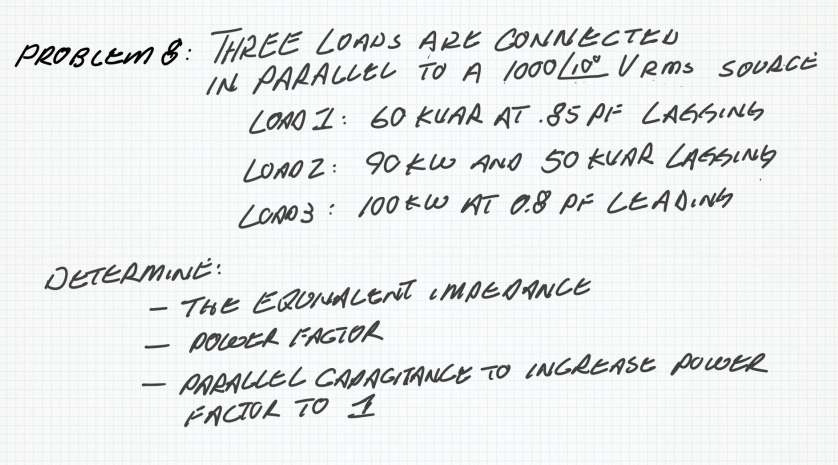 PROBLEM 8: THREE LOADS ARE CONNECTED
IN PARALLEL TO A 1000∠10° V RMS SOURCE
LOAD 1: 60 KVAR AT .85 PF LAGGING
LOAD 2: 90 KW AND 50 KVAR LAGGING
LOAD 3: 100 KW AT 0.8 PF LEADING
DETERMINE:
— THE EQUIVALENT IMPEDANCE
— POWER FACTOR
— PARALLEL CAPACITANCE TO INCREASE POWER
FACTOR TO 1